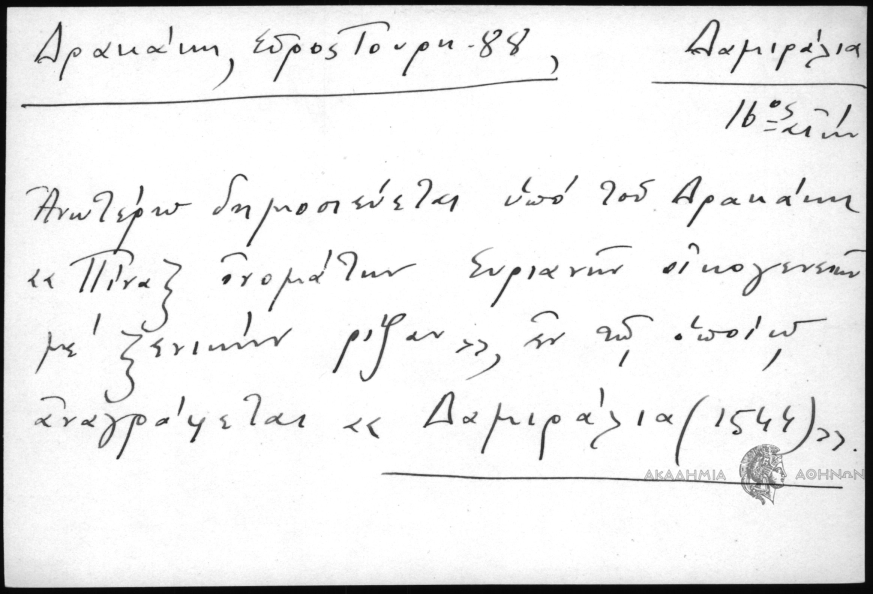 Δρακάκη, Σῦρος Τουρκ. 88, Δαμιράλια
16ος αἰών
Ἀνωτέρω δημοσιεύεται ὑπό τοῦ Δρακάκη
«Πῖναξ ὀνομάτων Συριανῶν οἰκογενειῶν
μέ ξενικήν ρίζαν», ἐν τῷ ὁποίῳ
ἀναγράφεται «Δαμιράλια (1544)».
ΑΚΑΔΗΜΙΑ ΑΘΗΝΩΝ